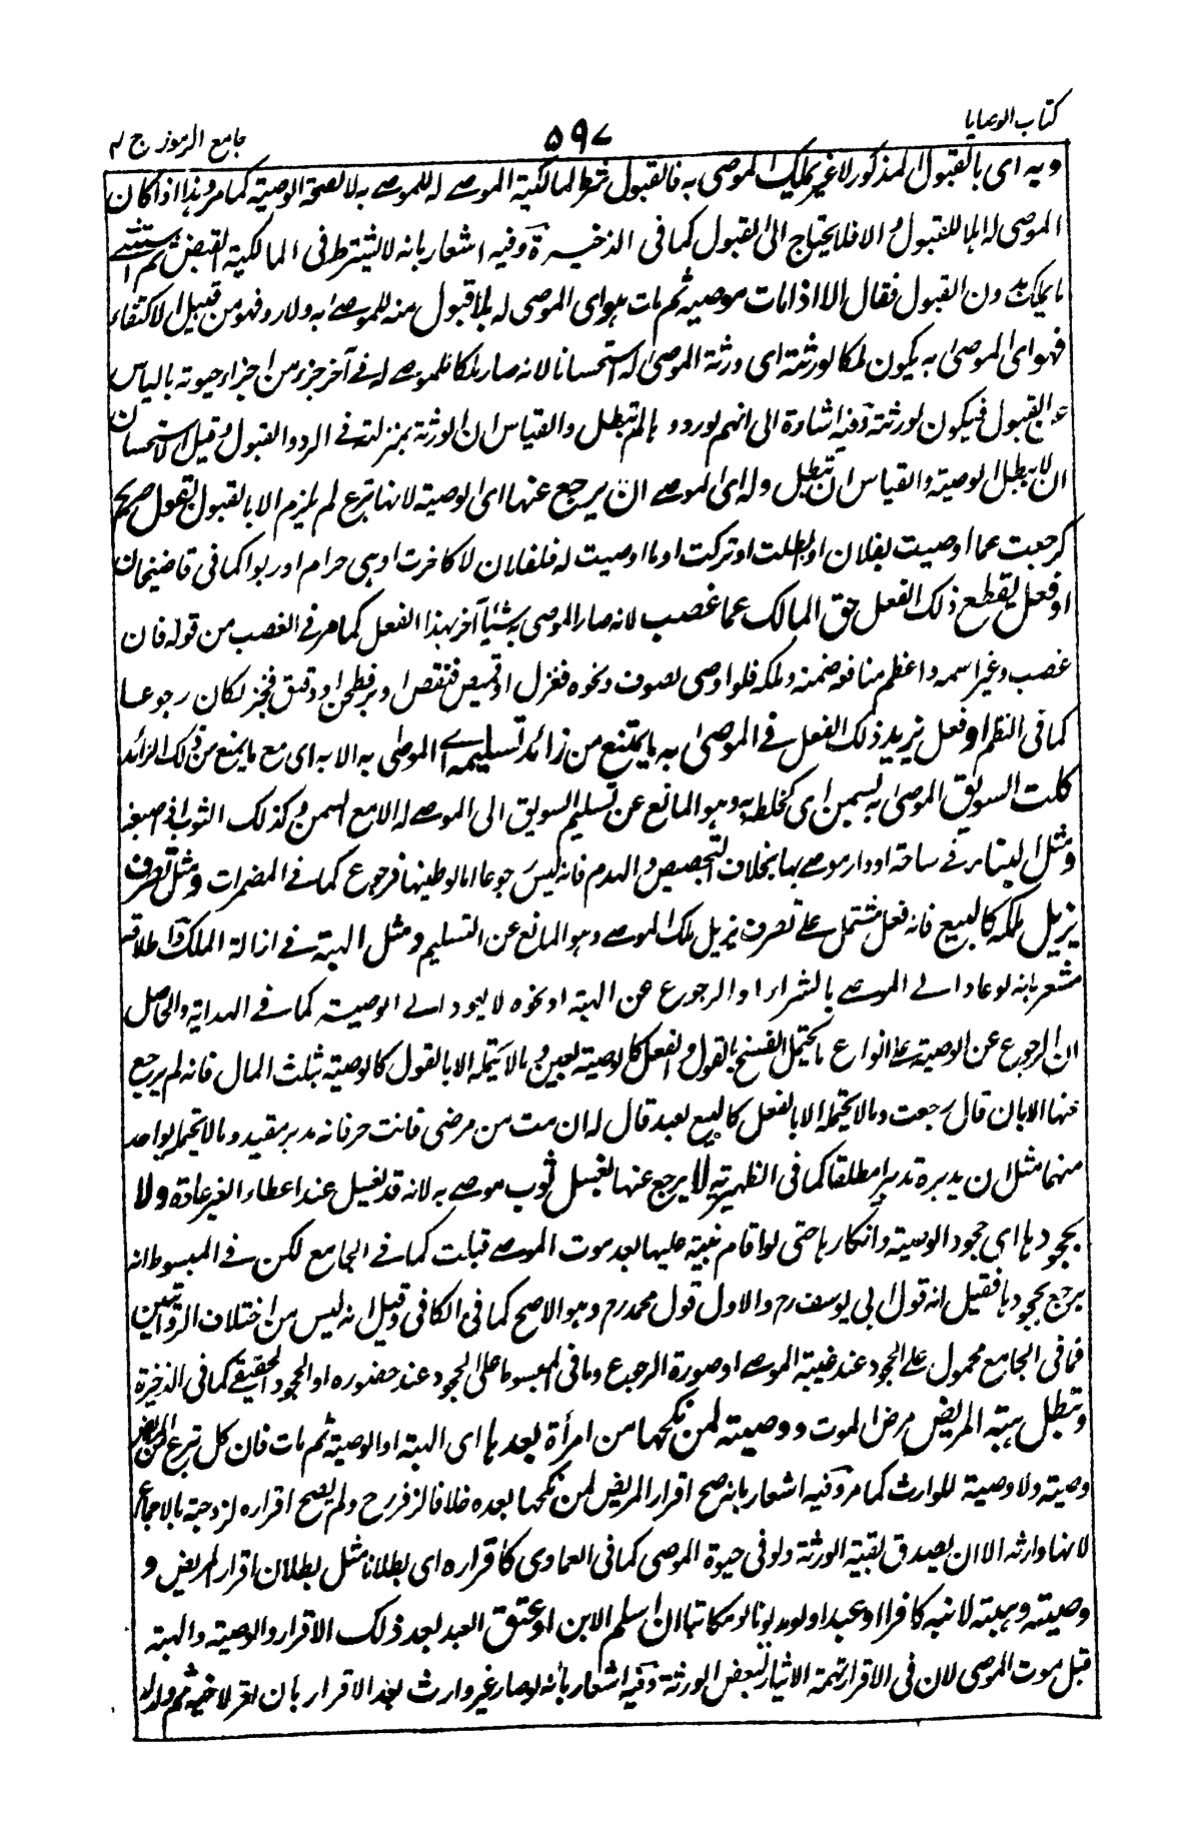 كتاب الوصايا
۵۹۷
جامع الرموز ج
وبه اى بالقبول المذكور لا غير يملك الموصى به فالقبول شرط لمالكية الموصے له للموصے به لا لصحة الوصية كما مر وهذا اذا كان
الموصى له اهلا للقبول والا فلا يحتاج الى القبول كما فى الذخيرة وفيه اشعار بانه لا يشترط فى المالكية القبض ثم استثنے
ما يملك بدون القبول فقال الا اذا مات موصيه ثم مات هو اى الموصى له بلا قبول منه للموصے به ولا رد فهو من قبيل الاكتفاء
فهو اى الموصى به يكون ملكا لورثته اى ورثة الموصى له استحسانا لانه صار ملكا للموصے له فے آخر جزء من اجزاء حيوته بالياس
عن القبول فيكون لورثته وفيه اشارة الى انهم لو ردوها لم تبطل والقياس ان الورثة بمنزلته فے الرد والقبول وقيل الاستحسان
ان لا يبطل الوصية والقياس ان تبطل وله اى للموصے ان يرجع عنها اى الوصية لانها تبرع لم يلزم الا بالقبول بقول صريح
كرجعت عما اوصيت بفلان او ابطلت او تركت او ما اوصيت له فلفلان لا كاخرت او هى حرام او ربوا كما فى قاضيخان
او فعل يقطع ذلك الفعل حق المالك عما غصب لانه صار الموصى به شيئا آخر بهذا الفعل كما مر فى الغصب من قوله فان
غصب وغير اسمه واعظم منافعه ضمنه وملكه فلو اوصى بصوف ونحوه فغزل او قميص فنقض او بر فطحن او دقيق فخبز لكان رجوعا
كما فى النظم او فعل يزيد ذلك الفعل فے الموصى به ما يمتنع من زائد تسليمه اے الموصى به الا به اى مع ما يمنع من ذلك الزائد
كلت السويق الموصى به بسمن اى كخلطه به وهو المانع عن تسليم السويق الى الموصے له الا مع السمن وكذلك الثوب اذا صبغه
ومثل البناء فے ساحة او دار موصے بها بخلاف التجصيص والهدم فانه ليس رجوعا اما لو طينها فرجوع كما فے المضمرات ومثل تصرف
يزيل ملكه كالبيع فانه فعل مشتمل علے تصرف يزيل ملك الموصے وهو المانع عن التسليم ومثل الهبة فے ازالة الملك واطلاقه
مشعر بانه لو عاد الے الموصے بالشراء او الرجوع عن الهبة او نحوه لا يعود الے الوصية كما فے الهداية والحاصل
ان الرجوع عن الوصية على انواع ما يحتمل الفسخ بالقول والفعل كالوصية بعين وما لا يحتمله الا بالقول كالوصية بثلث المال فانه لم يرجع
عنها الا بان قال رجعت وما لا يحتمله الا بالفعل كالبيع لعبد قال له ان مت من مرضى فانت حر فانه مدبر مقيد وما لا يحتمله بواحد
منهما مثل ان يدبره تدبيرا مطلقا كما فى الظهيرية لا يرجع عنها بغسل ثوب موصے به لانه قد يغسل عند اعطاء الغير عادة ولا
بجحودها اى جحود الوصية وانكارها حتى لو اقام بينة عليها بعد موت الموصے قبلت كما فے الجامع لكن فے المبسوط انه
يرجع بجحودها فقيل انه قول ابى يوسف رح والاول قول محمد رح وهو الاصح كما فى الكافى وقيل انه ليس من اختلاف الروايتين
فما فى الجامع محمول علے الجحود عند غيبة الموصے او صورة الرجوع وما فى المبسوط على الجحود عند حضوره او الجحود الحقيقے كما فى الذخيرة
وتبطل هبة المريض مرض الموت ووصيته لمن نكحها من امرأة بعدها اى الهبة او الوصية ثم مات فان كل تبرع المريض
وصية ولا وصية للوارث كما مر وفيه اشعار بانه صح اقرار المريض لمن نكحها بعده خلافا لزفر رح ولم يصح اقراره لزوجته بالاجماع
لانها وارثة الا ان يصدق بقية الورثة ولو فى حيوة الموصى كما فى العمادى كاقراره اى بطلانا مثل بطلان اقرار المريض و
وصيته وهبته لابنه كافرا او عبدا ولو مديونا او مكاتبا ان اسلم الابن او عتق العبد بعد ذلك الاقرار والوصية والهبة
قبل موت الموصى لان فى الاقرار تهمة الايثار لبعض الورثة وفيه اشعار بانه لو صار غير وارث بعد الاقرار بان يقر لاخيه ثم ولد له